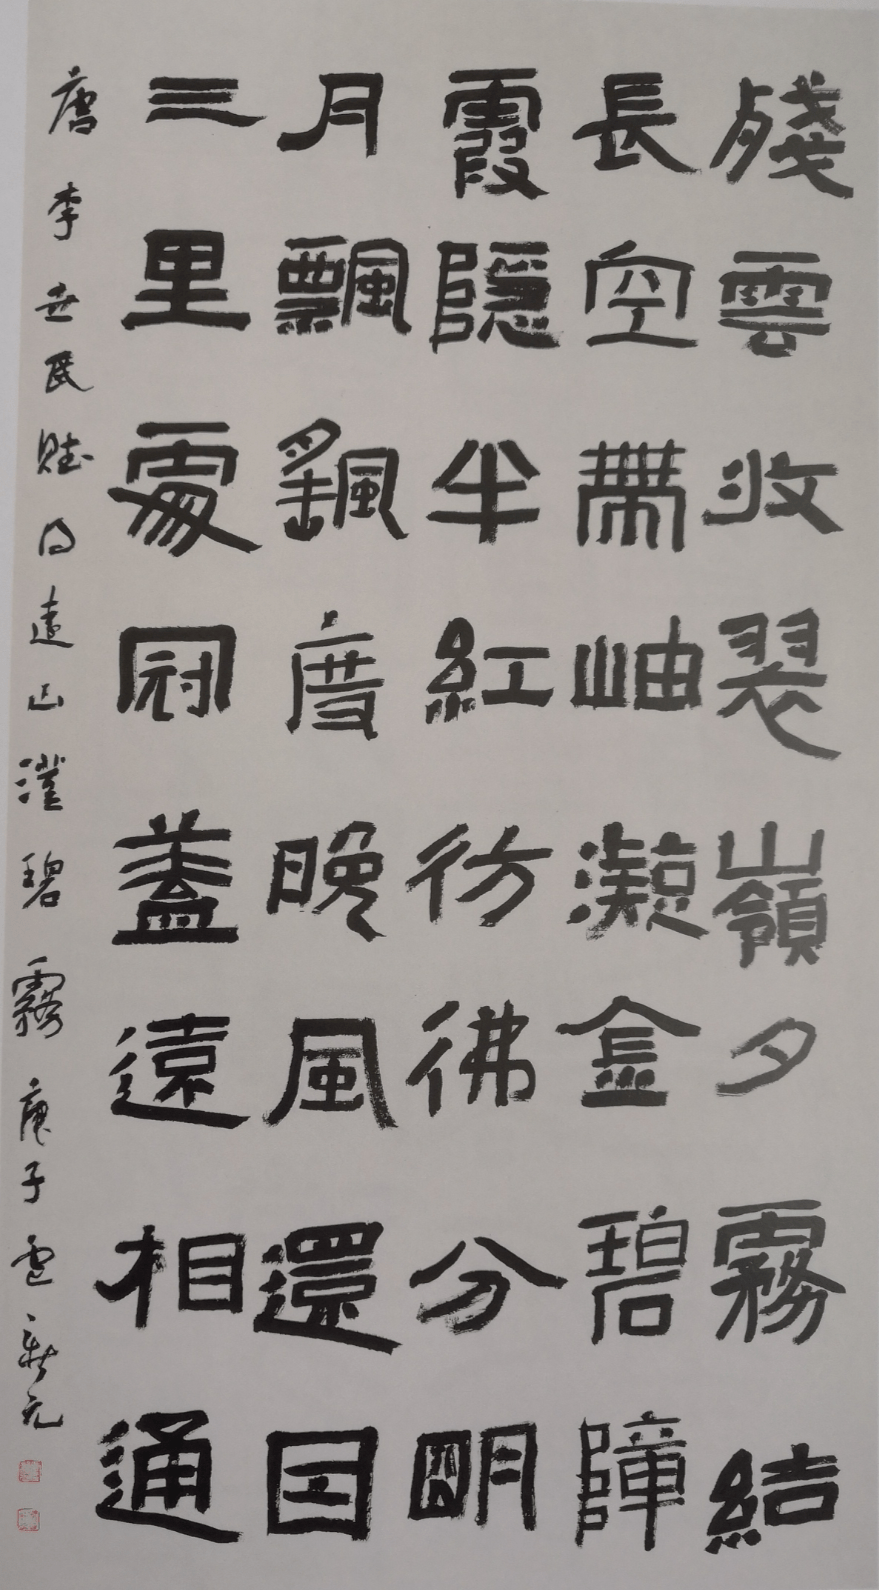 殘雲收翠嶺夕霧結
長空帶岫凝金碧障
霞隱半紅彷彿分明
月飄颻度晚風還因
三里處冠蓋遠相通
唐李世民賦得遠山澄碧霧庚子元